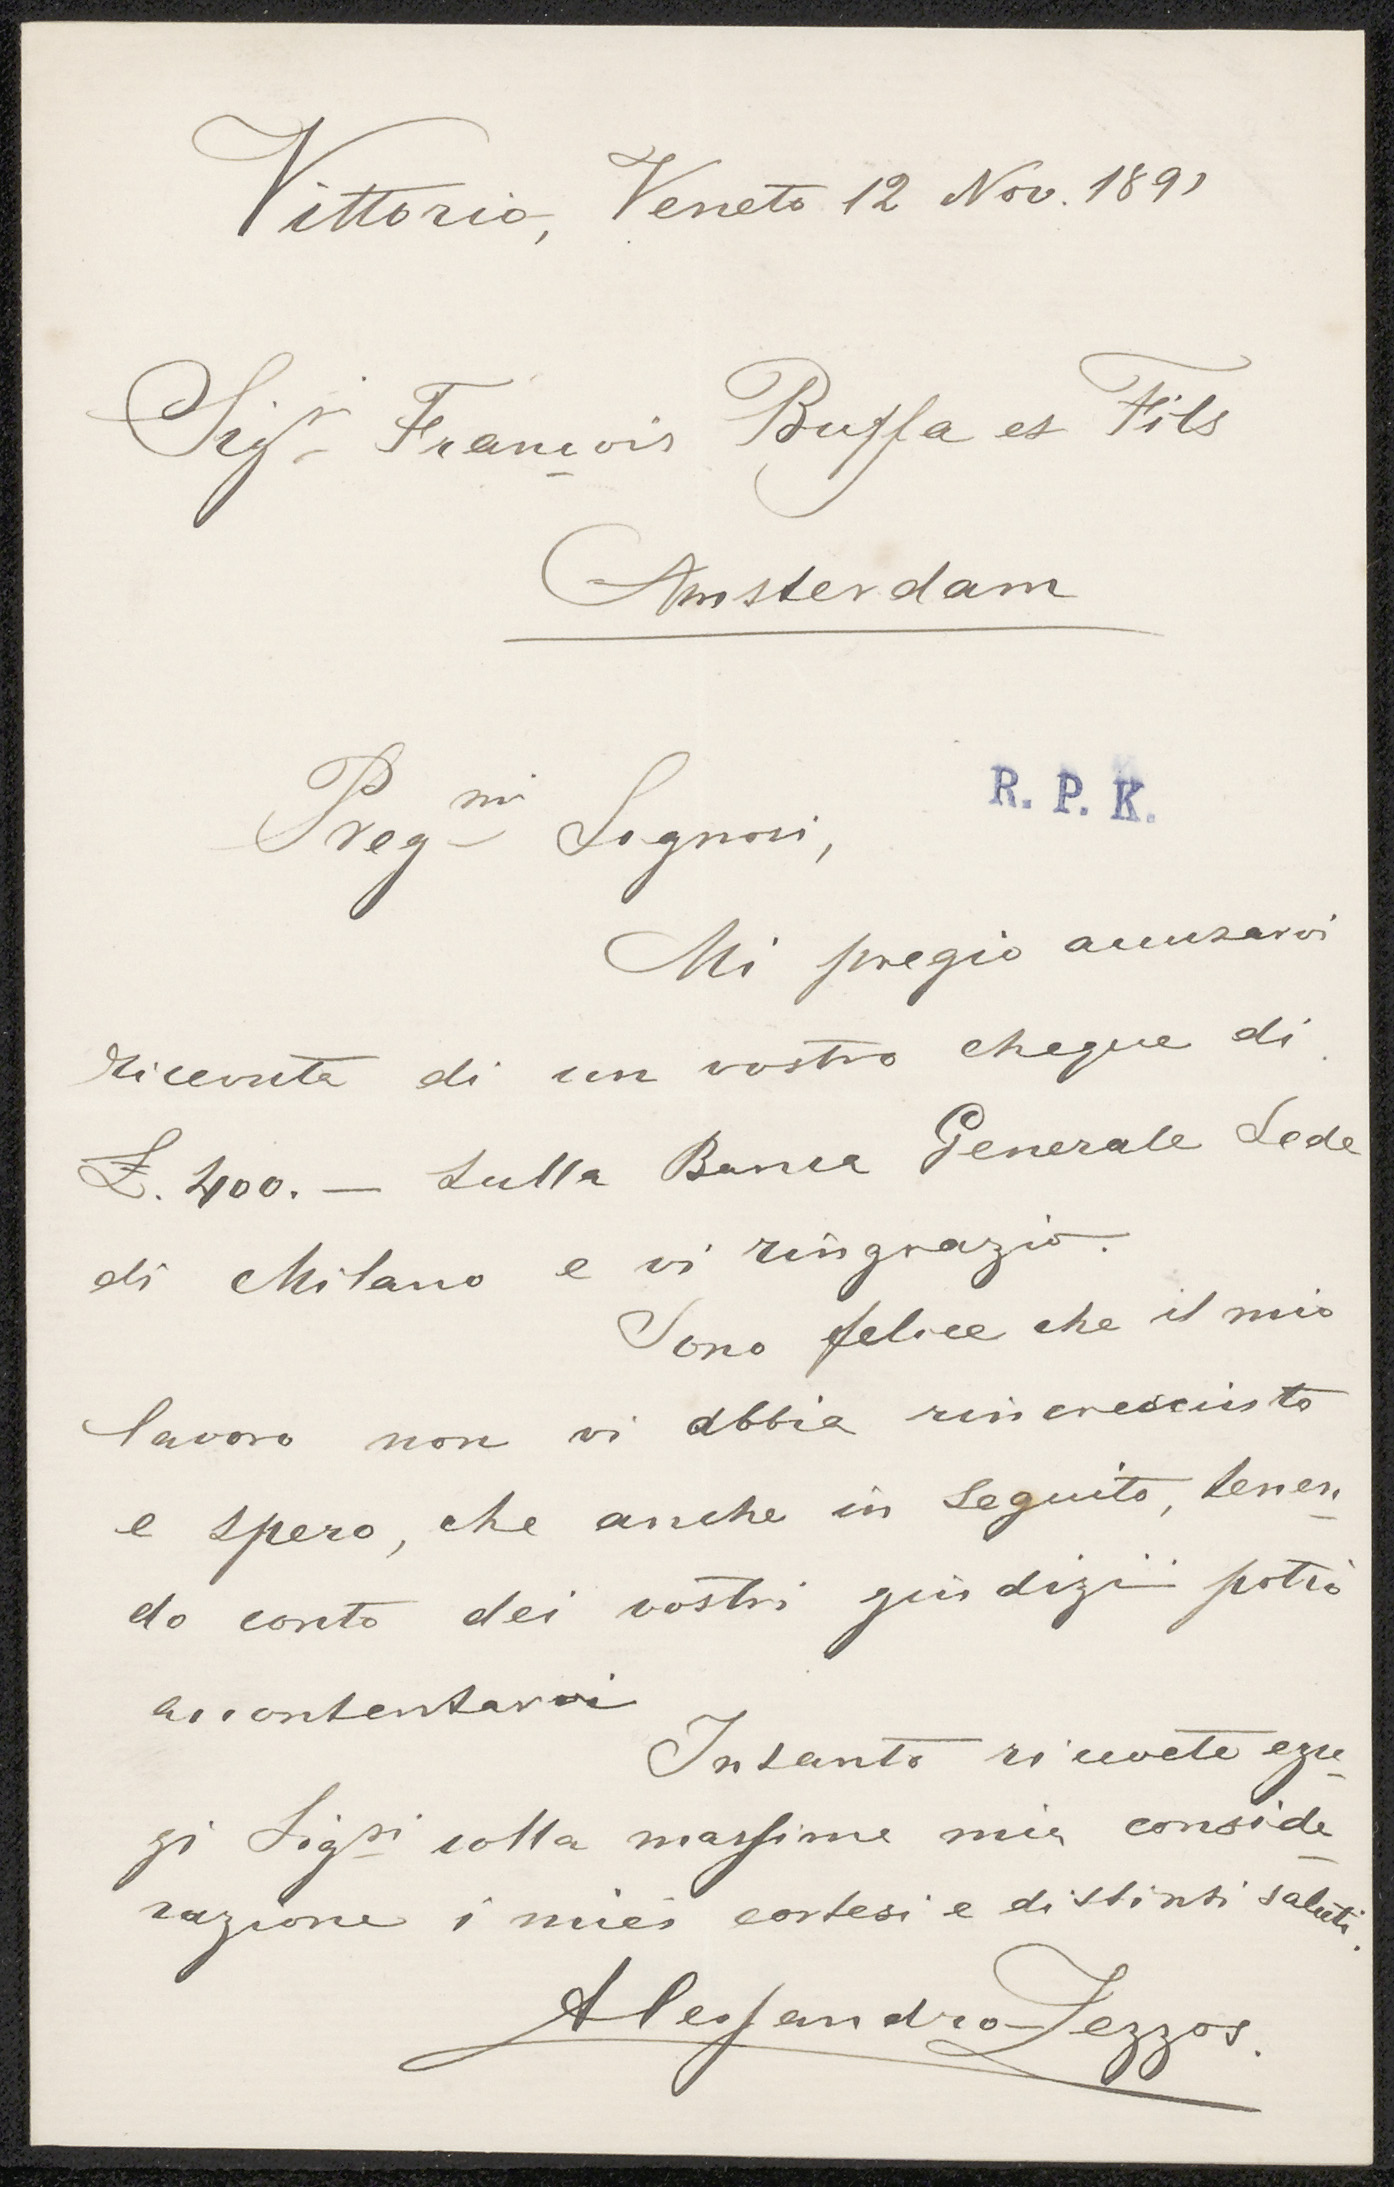 Vittorio, Veneto 12 Nov. 1891
Sigr François Buffa et Fils
Amsterdam
Pregmi Signori,
R. P. K.
Mi pregio accusarvi
ricevuta di un vostro cheque di
£. 400. — sulla Banca Generale Sede
di Milano e vi ringrazio.
Sono felice che il mio
lavoro non vi abbia rincresciuto
e spero, che anche in seguito, tenen-
do conto dei vostri giudizii potrò
accontentarvi
Intanto ricevete egre-
gi Sigri colla massima mia conside-
razione i miei cortesi e distinti saluti.
Alessandro Zezzos.